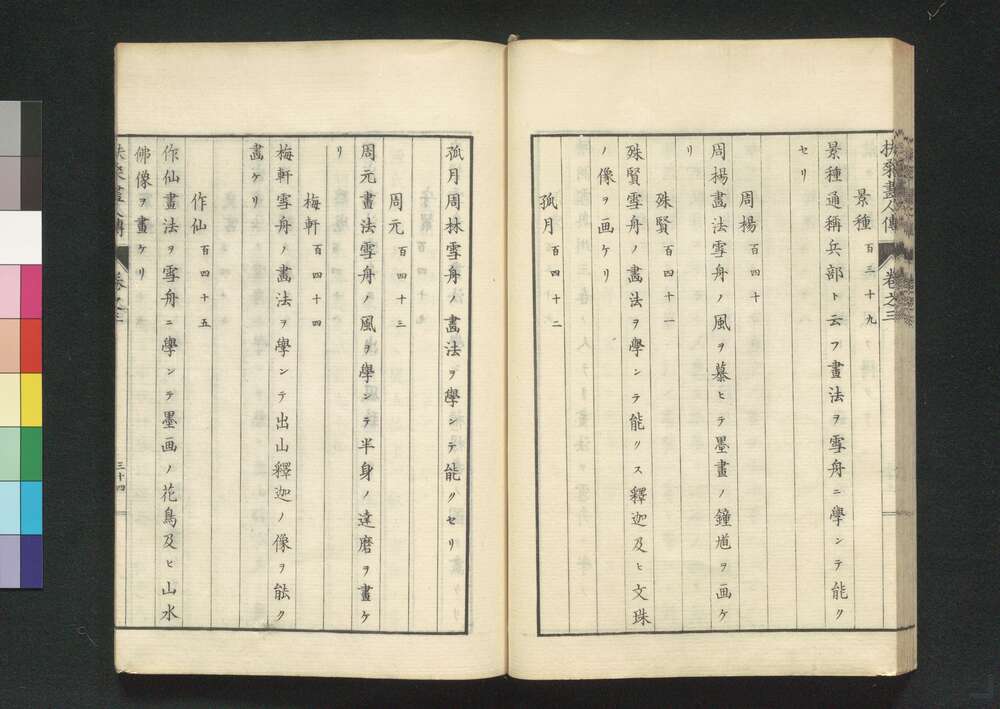 扶桑畫人傳 卷之三
景種 百三十九
景種通稱兵部ト云フ畫法ヲ雪舟ニ學ンテ能ク
セリ
周楊 百四十
周楊畫法雪舟ノ風ヲ慕ヒテ墨畫ノ鐘馗ヲ画ケ
リ
殊賢 百四十一
殊賢雪舟ノ畫法ヲ學ンテ能クス釋迦及ヒ文珠
ノ像ヲ画ケリ
孤月 百四十二
孤月周林雪舟ノ畫法ヲ學ンテ能クセリ
周元 百四十三
周元畫法雪舟ノ風ヲ學ンテ半身ノ達磨ヲ畫ケ
リ
梅軒 百四十四
梅軒雪舟ノ畫法ヲ學ンテ出山釋迦ノ像ヲ能ク
畵ケリ
作仙 百四十五
作仙畫法ヲ雪舟ニ學ンテ墨画ノ花鳥及ヒ山水
佛像ヲ畫ケリ
扶桑畫人傳 卷之三 三十四